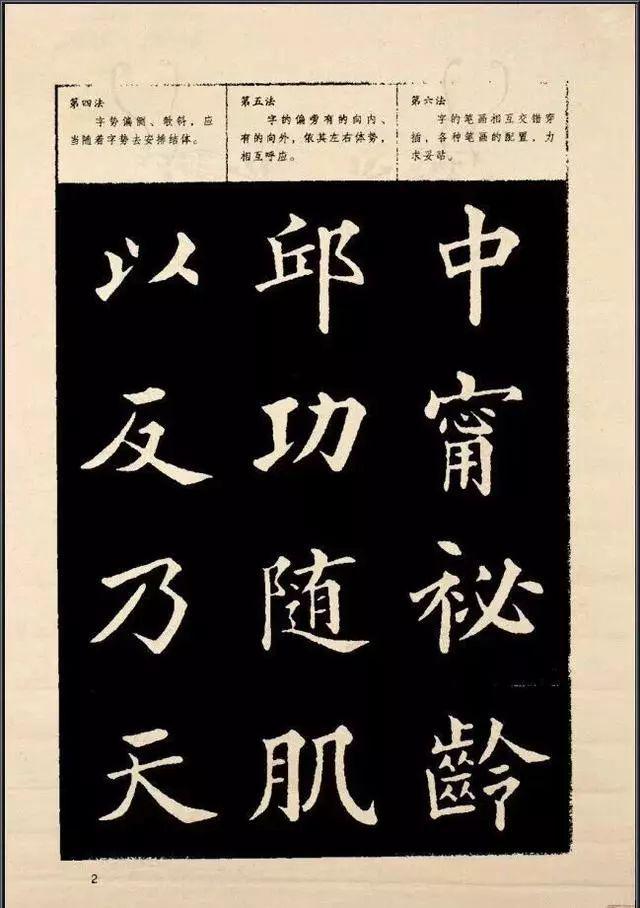 第四法
字势偏侧、欹斜，应
当随着字势去安排结体。
第五法
字的偏旁有的向内、
有的向外，依其左右体势，
相互呼应。
第六法
字的笔画相互交错穿
插，各种笔画的配置，力
求妥贴。
以 邱 中
反 功 甯
乃 随 祕
天 肌 齡
2